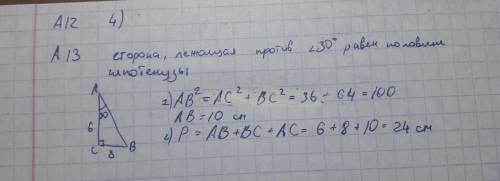 А12 4)
А13 сторона, лежащая против ∠30° равен половине
гипотенузы
A
30
6
C 8 B
1) AB² = AC² + BC² = 36 + 64 = 100
AB = 10 см
2) P = AB + BC + AC = 6 + 8 + 10 = 24 см